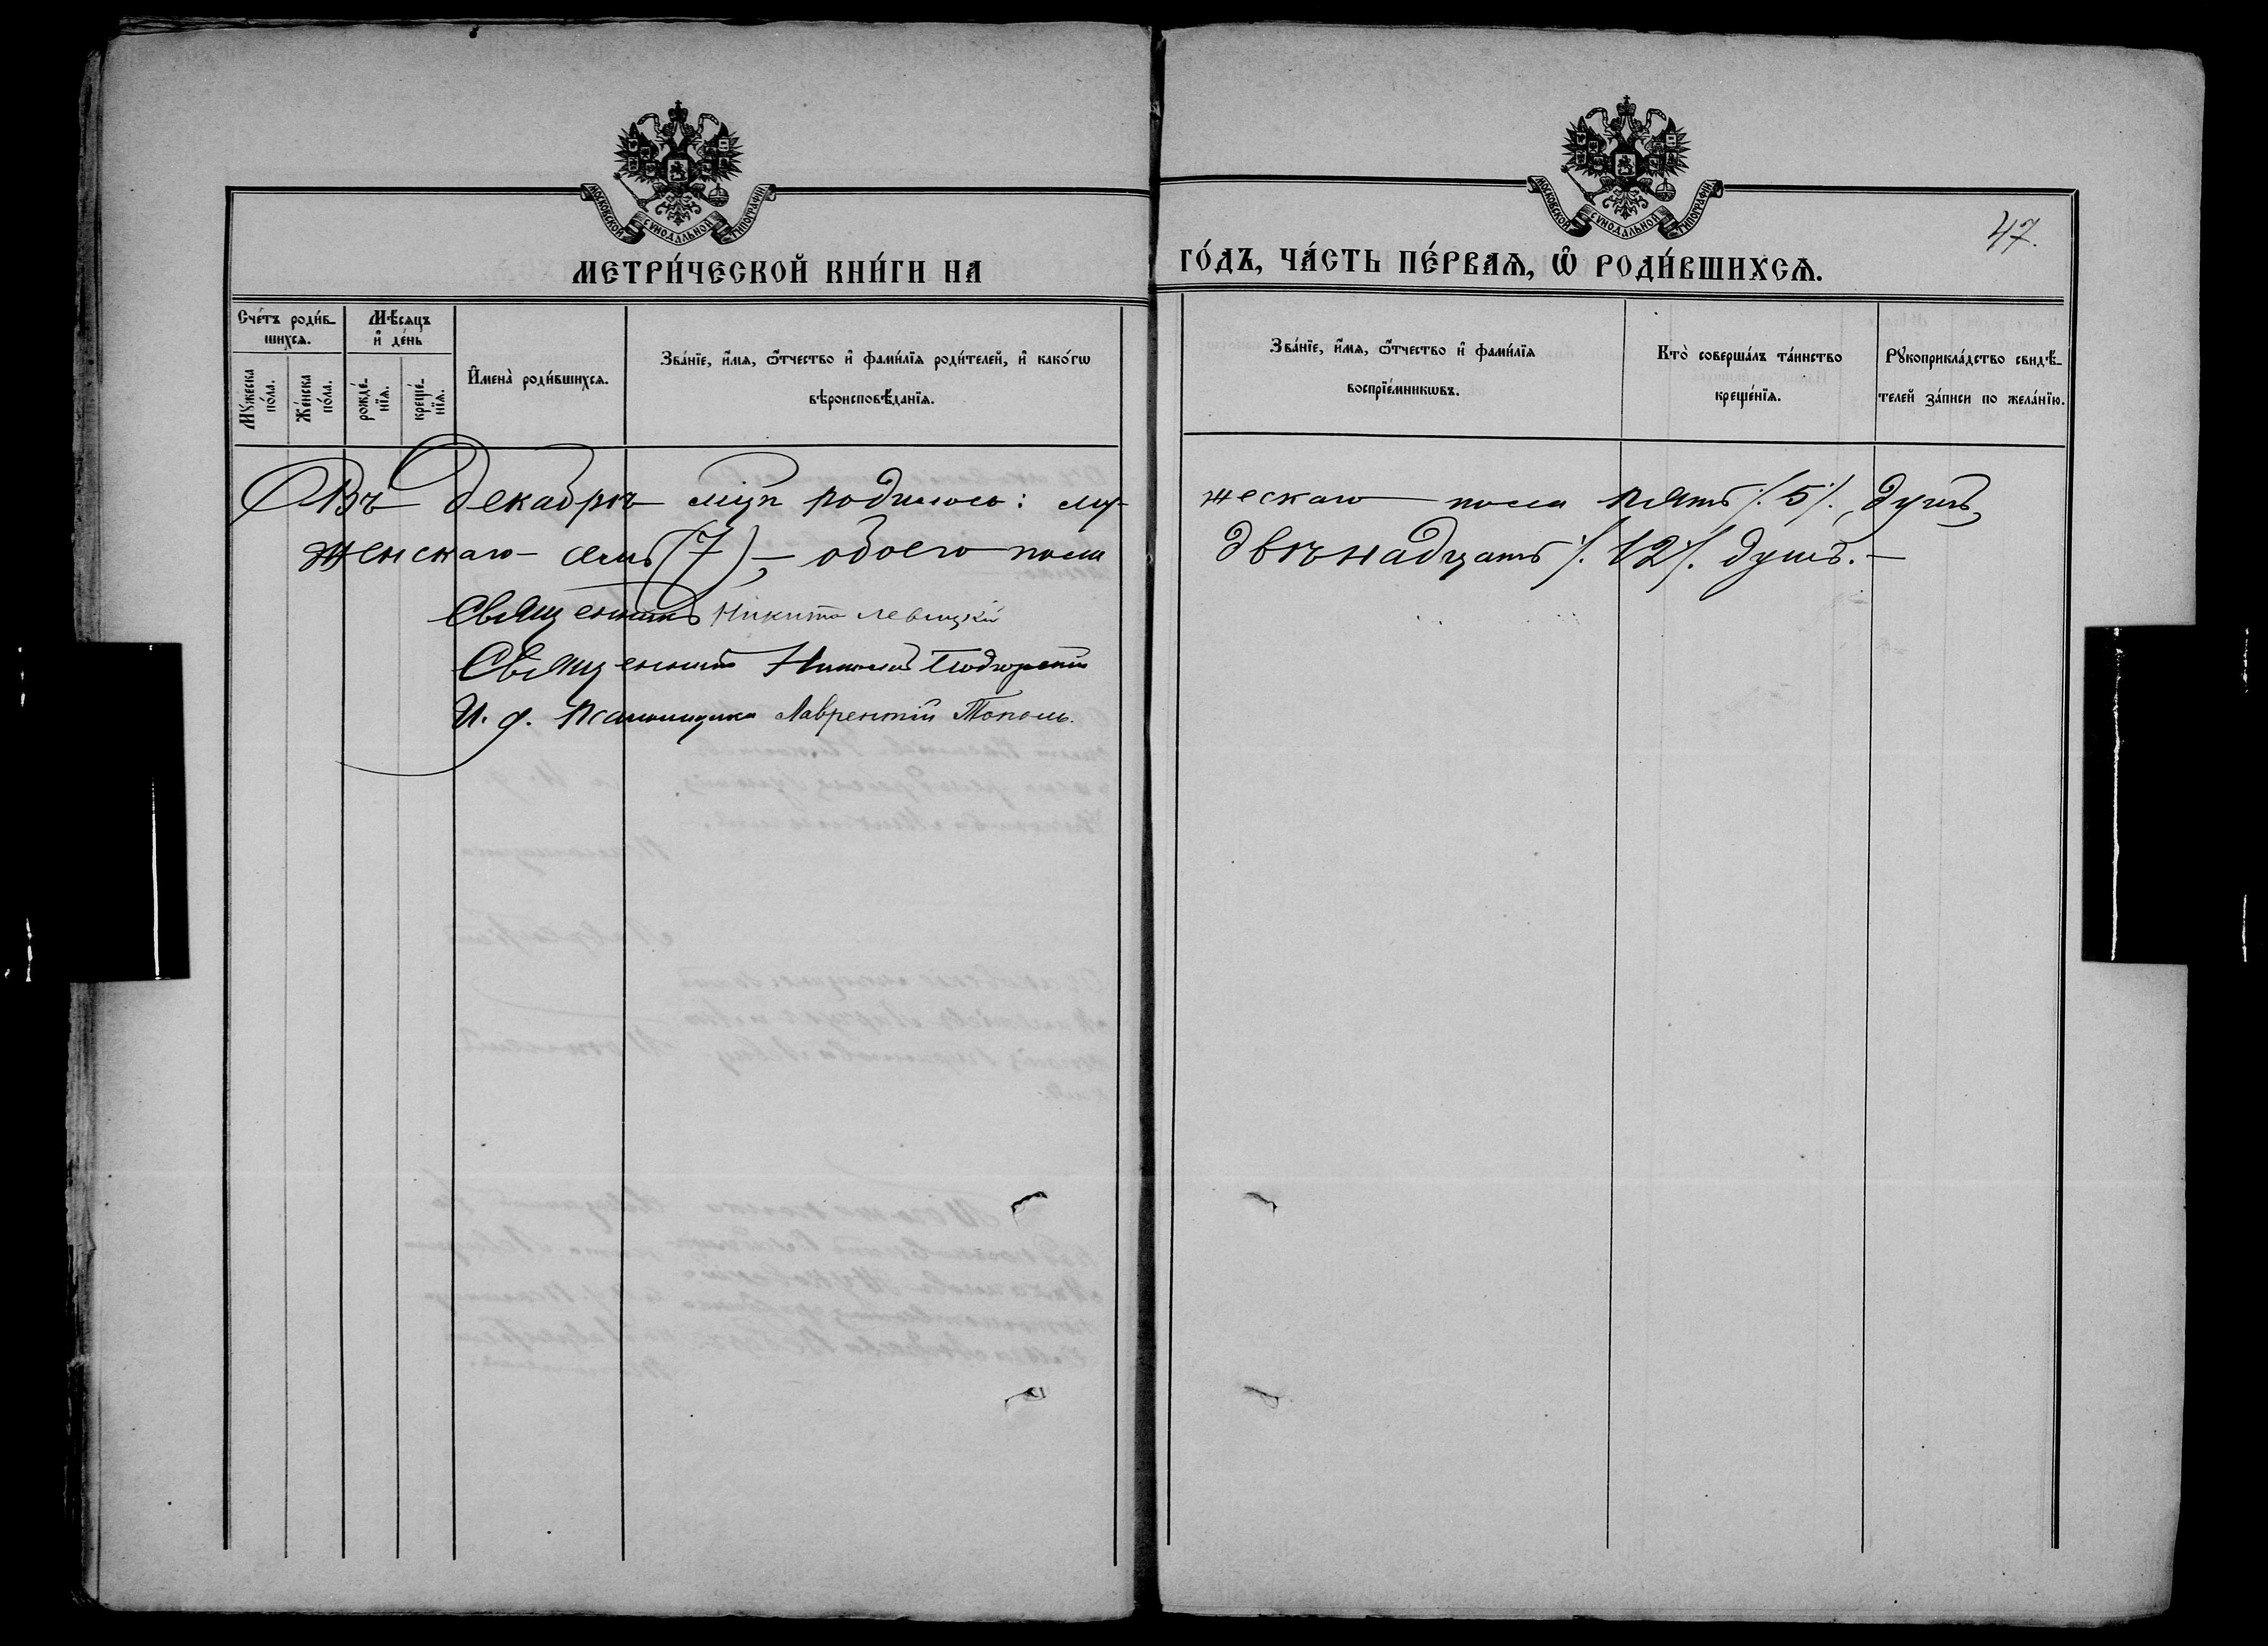 МОСКОВСКОЙ СѴНОДАЛЬНОЙ ТИПОГРАФІИ
МЕТРИ́ЧЕСКОЙ КНИ́ГИ НА
Сче́тъ роди́в-
шихсѧ.
Мѣ́сѧцъ
и҆ де́нь
Мꙋ́жеска
по́ла.
Же́нска
по́ла.
рожде́-
нїѧ.
креще́-
нїѧ.
И҆мена̀ роди́вшихсѧ.
Зва́нїе, и҆́мѧ, ѻ҆́тчество и҆ фами́лїѧ роди́телей, и҆ како́гѡ
вѣроисповѣ́данїѧ.
Въ декабрѣ мцѣ родилось: му-
женскаго - семь (7), - обоего пола
Священникъ Никита Левицкій
Священникъ Николай Подгорскій
И. д. Псаломщика Лаврентій Тополь.
МОСКОВСКОЙ СѴНОДАЛЬНОЙ ТИПОГРАФІИ
47.
ГО́ДЪ, ЧА́СТЬ ПЕ́РВАѦ, Ѡ҆ РОДИ́ВШИХСѦ.
Зва́нїе, и҆́мѧ, ѻ҆́тчество и҆ фами́лїѧ
воспрїе́мникѡвъ.
Кто̀ соверша́лъ та́инство
креще́нїѧ.
Рꙋкоприкла́дство свидѣ́-
телей за́писи по жела́нїю.
жескаго пола пять /. 5 /., душъ,
двѣнадцать /. 12 /. душъ. -